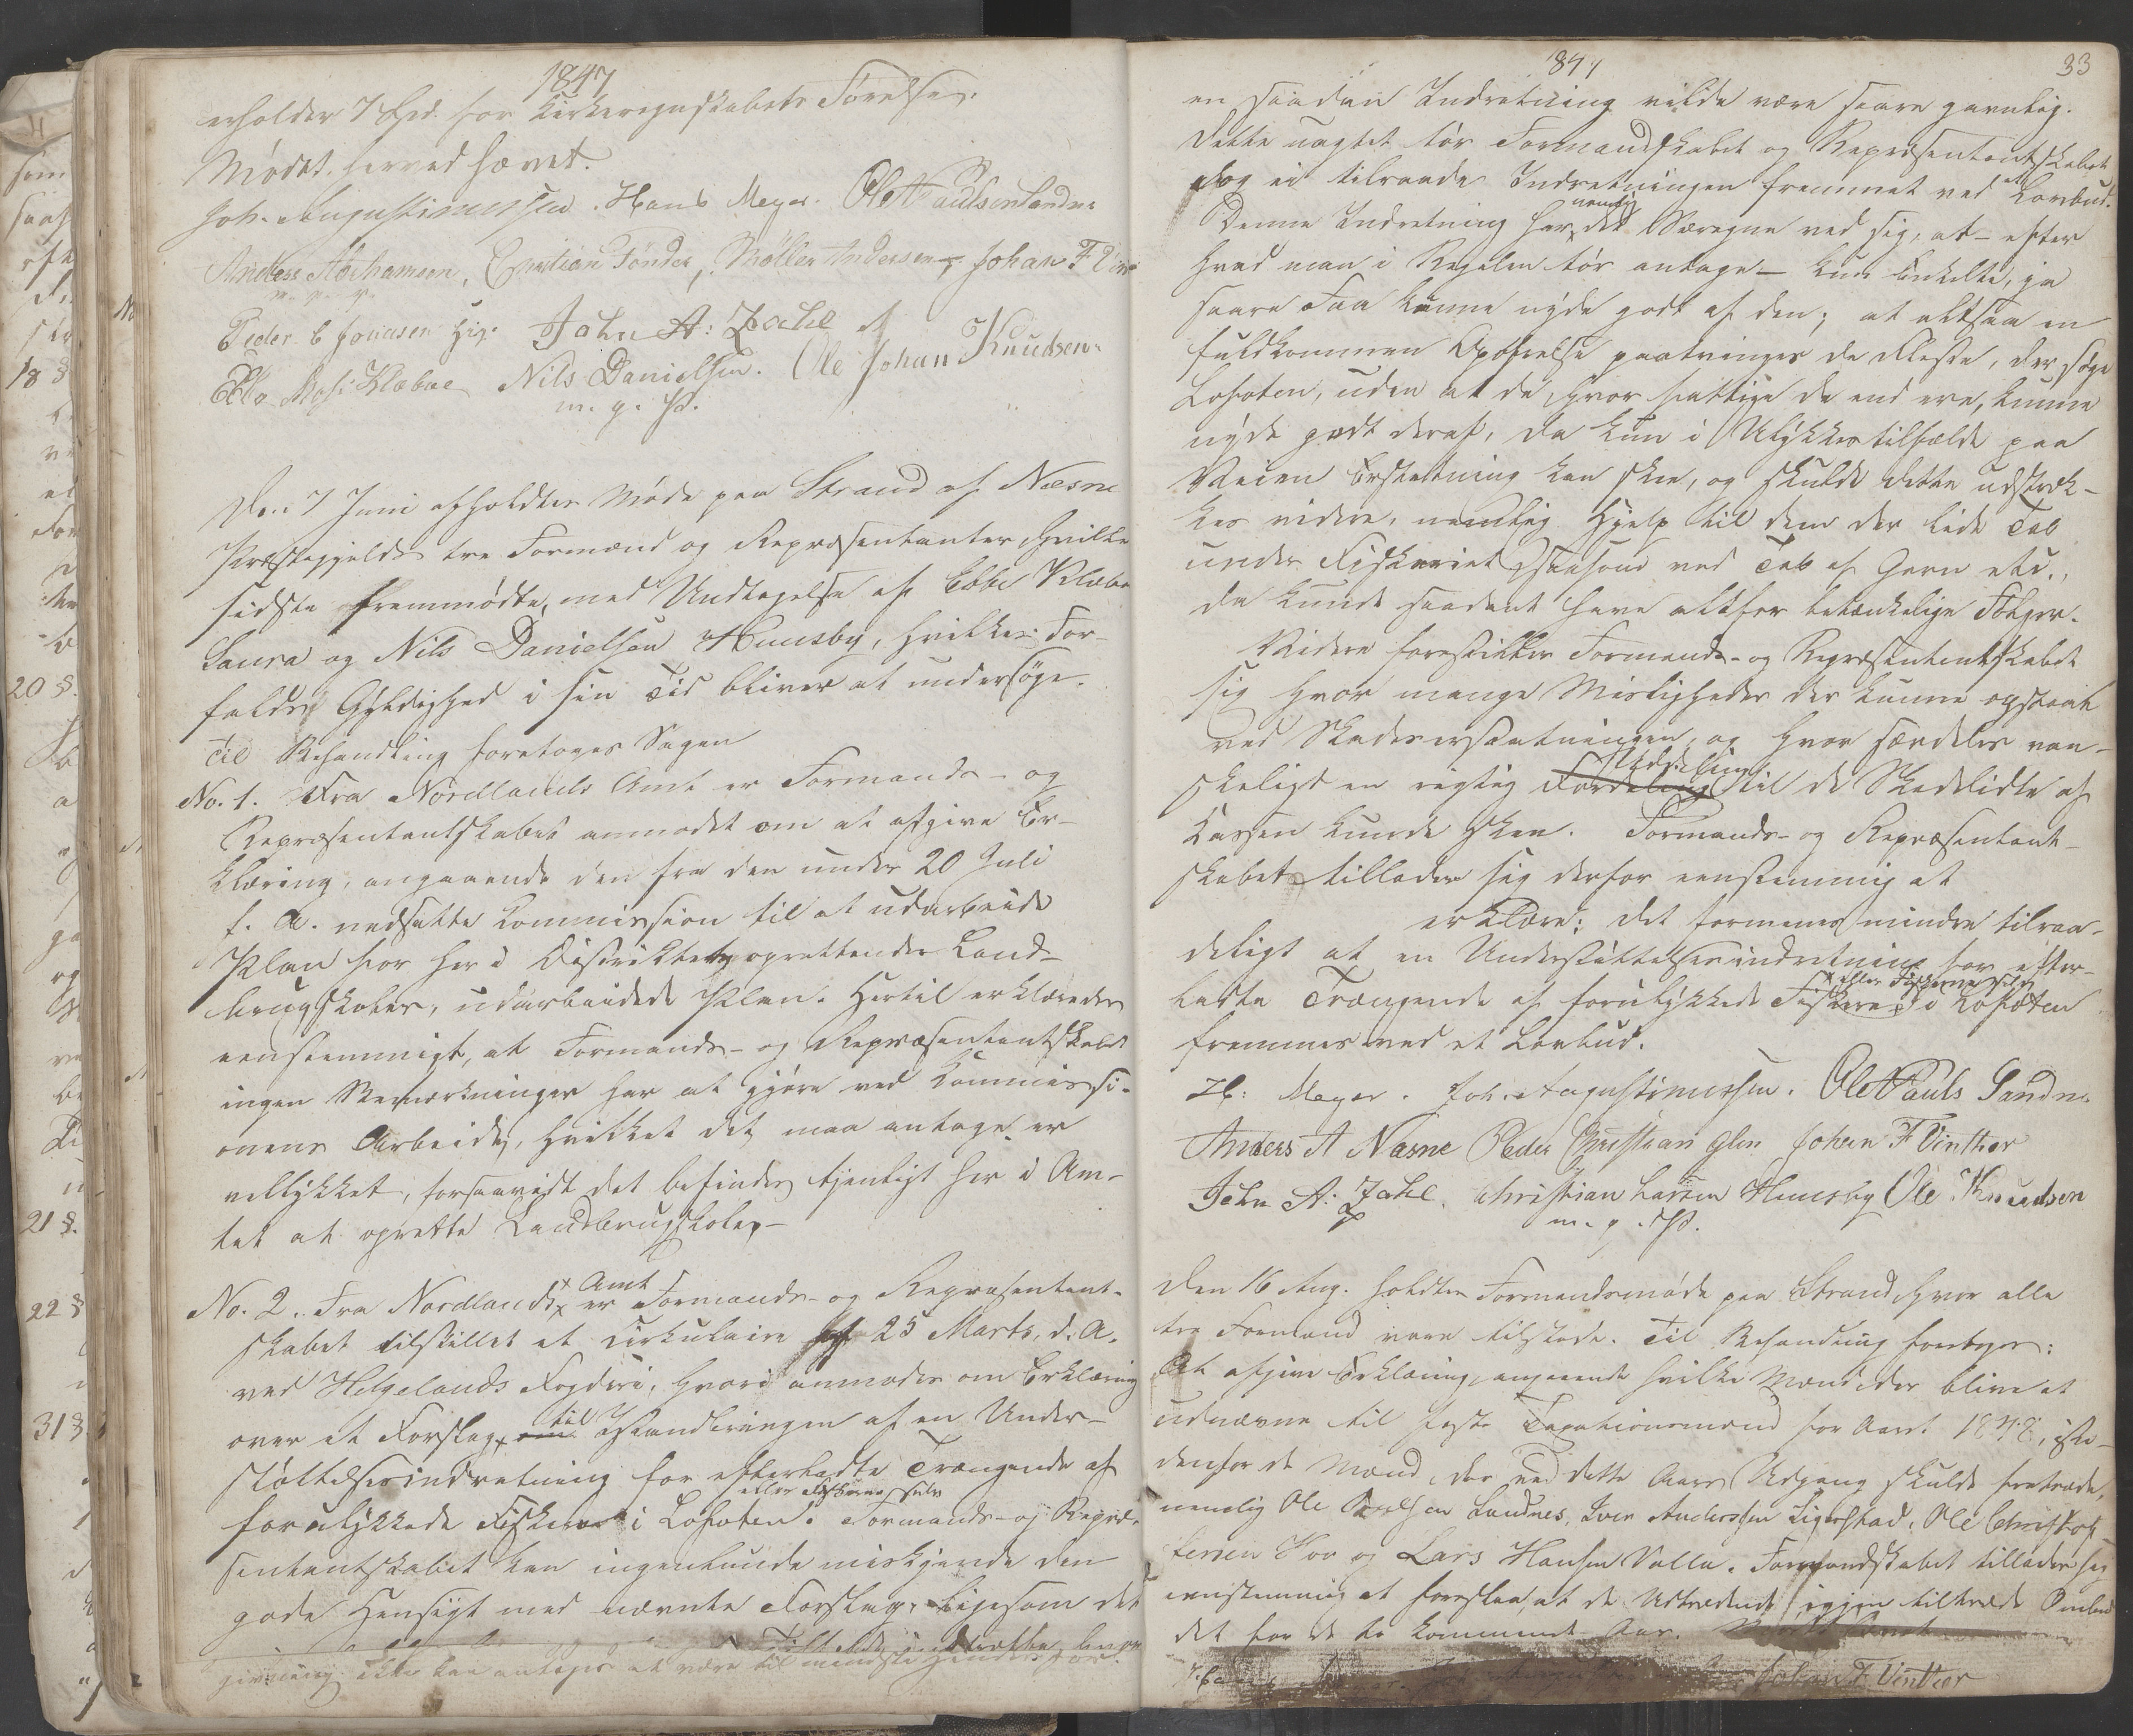 1847
erholder 7 Spd. for Kirkeregnskabets Førelse.
Mødet herved hævet.
Joh. Augustinussen. Hans Meyer. Ole Paulsen Sandnes
Anders Abrahamsen, Christian Tønder, Møller Andersen, Johan F Vin
m. p. P.
Peder C Jonasen Hig. John A: Zahl
Ebbe Klæboe Nils Danielsen. Ole Johan Knudsen
m. p. P.
Den 7 Juni afholdtes Møde paa Strand af Næsne
Præstegjelds tre Formænd og Repræsentanter hvilke
sidste fremmødte, med Undtagelse af Ebbe Klæboe
Saura og Nils Danielsen Huusby, hvilkes For-
falds Gyldighed i sin Tid bliver at undersøge.
Til Behandling foretoges Sagen
No. 1. Fra Nordlands Amt er Formands- og
Repræsentantskabet anmodet om at afgive Er-
klæring, angaaende den fra den under 20 Juli
f. A. nedsatte Kommission til at udarbeide
Plan for her i Distriktet oprettendes Land-
brugskoler, udarbeidede Plan. Hertil erklæredes
eenstemmigt, at Formands- og Repræsentantskabet
ingen Bemærkninger har at gjøre ved Kommissi-
onens Arbeide, hvilket det maa antage er
vellykket, forsaavidt det befindes tjenligt her i Am-
tet at oprette Landbrugskoler.-
No. 2. Fra Nordlands Amt er Formands- og Repræsentant-
skabet tilstillet et Cirkulaire af 25 Marts, d. A.
ved Helgelands Fogderi, hvori anmodes om Erklæring
over et Forslag til Istandbringen af en Under-
støttelsesindretning for efterladte Trængende af
eller Fiskerne selv
forulykkede Fiskere i Lofoten. Formands- og Repræ-
sentantskabet kan ingenlunde miskjende den
gode Hensigt med nævnte Forslag, ligesom det
givning ikke kan antages at være til mindste Hinder for
1847
33
en saadan Indretning vilde være saare gavnlig.
Dette uagtet tør Formandskabet og Repræsentantskabet
dog ei tilraade Indretningen fremmet ved et Lovbud.
Denne Indretning har nemlig det Særegne ved sig, at - efter
hvad man i Regelen tør antage - kun Enkelte, ja
saare Faa kunne nyde godt af den; at altsaa en
fuldkommen Opofrelse paatvinges de Fleste, der søge
Lofoten, uden at de, hvor fattige de end ere, kunne
nyde godt deraf, da kun i Ulykkestilfælde paa
Veien Erstatning kan skee, og skulde dette udstræk-
kes videre, nemlig Hjelp til dem der lide Tab
under Fiskeriet saasom ved Tab af Garn etc.,
da kunde saadant have altfor betænkelige Følger.
Videre forestiller Formands- og Repræsentantskabet
sig hvor mange Misligheder der kunne opstaae
ved Skadeserstatningen, og hvor særdeles van-
skeligt en rigtig Uddeling til de Skadelidte af
Kassen kunde skee. Formands- og Repræsentant-
skabet tillader sig derfor eenstemmig at
erklære: det formenes mindre tilraa-
deligt at en Understøttelsesindretning for efter-
ladte Trængende af forulykkede Fiskere eller Fiskerne selv i Lofoten
fremmes ved et Lovbud.
H: Meyer. Joh. Augustinussen. Ole Pauls Sandnes
Anders A Næsne Peder Christian Glen Johan F Vinther
John A: Zahl. Christian Larsen Huusby Ole Knudsen
m. p. P.
Den 16 Aug. holdtes Formandsmøde paa Strand hvor alle
tre Formænd vare tilstede. Til Behandling foretoges:
At afgive Erklæring, angaaende hvilke Mænd der blive at
udnævne til faste Taxationsmænd for Aaret 1848, iste-
denfor de Mænd, der ved dette Aars Udgang skulde fratræde,
nemlig Ole Poulsen Sandnes, Iver Anderssen Zigerstad, Ole Christof-
fersen Hov og Lars Hansen Valla. Formandskabet tillader sig
eenstemmig at foreslaa, at de Udtrædende igjen tiltræde Ombu-
det for de to kommende Aar.
Johan F Vinther